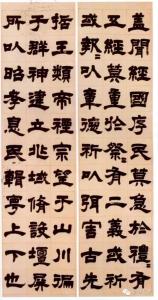 蓋聞經國序民莫急於禮〻有
五經莫重於祭〻有二義或祈
或報〻以章德祈以弭害古先
哲王類帝禋宗望于山川徧
于群神建立兆域脩設壇屏
所以昭孝息民輯寧上下也